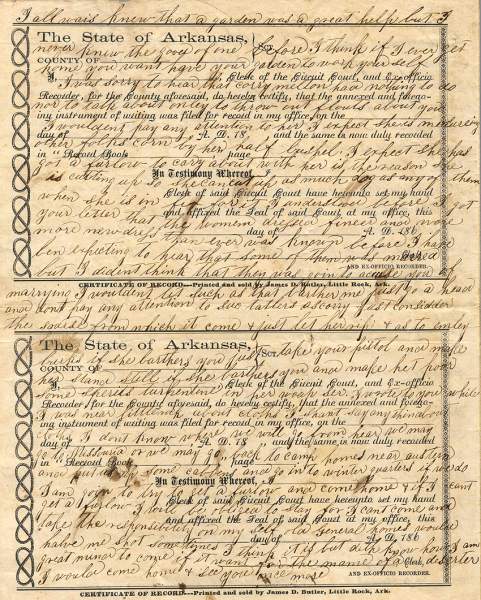 I allwais knew that a garden was a great help but I
The State of Arkansas,
never knew the good of one before I think if I ever get
COUNTY OF
home you wont have your garden to work your self
I, Clerk of the Circuit Court, and Ex-officio
I was sorry to hear that had nothing to do
Recorder, for the County aforesaid, do hereby certify, that the annexed and forego-
nor to talk about only to throw out slowes about you
ing instrument of writing was filed for record in my office, on the
I wouldent pay any attention to her I expect she is
day of A. D. 18 , and the same is now duly recorded
other folks corn by her half I expect she has
in "Record Book page
got a furlow to cary about with her is the reason she
In Testimony Whereof, I,
is cutting up so She can cut up as much as any of them
Clerk of said Circuit Court have hereunto set my hand
when she is in I understood before I got
and affixed the Seal of said Court, at my office, this
your letter that the women dressed finer and more
day of A. D. 186
more new dress than ever was known before I have
Clerk,
ben expecting to hear that some of them was married
AND EX-OFFICIO RECORDER.
but I dident think that they was going to
CERTIFICATE OF RECORD—Printed and sold by James D. Butler, Little Rock, Ark.
marrying I wouldent let such as that bother me just go a head
and dont pay any attention to but just consider
the from which it come & just let her rip & as to
The State of Arkansas,
if she bothers you just take your pistol and make
COUNTY OF Sct.
her stand if she bothers you and make her
I, Clerk of the Circuit Court, and Ex-officio
some in her I wrote to you while
Recorder for the County aforesaid, do hereby certify, that the annexed and forego-
I was near about cloths I shant say any thing about
ing instrument of writing was filed for record in my office, on the
cloths I dont know where we will go from hear we may
day of A. D. 18 , and the same is now duly recorded
go to Missouria or we may go back to camp homes near austin
in "Record Book page
and put up some cabbens and go in to winter quarters if we do
In Testimony Whereof, I,
I am goin to try to get a furlow and come home & if I cant
Clerk of said Circuit Court have hereunto set my hand
get a furlow I will be obliged to stay for I cant come and
and affixed the Seal of said Court, at my office, this
take the responsibility on my self General Holmes would
day of A. D. 186
have me shot sometimes I think it is but deth you know I am
Clerk,
prest minor to come if it want for the name of a deserter
AND EX-OFFICIO RECORDER.
I would come home & see you once more
CERTIFICATE OF RECORD—Printed and sold by James D. Butler, Little Rock, Ark.